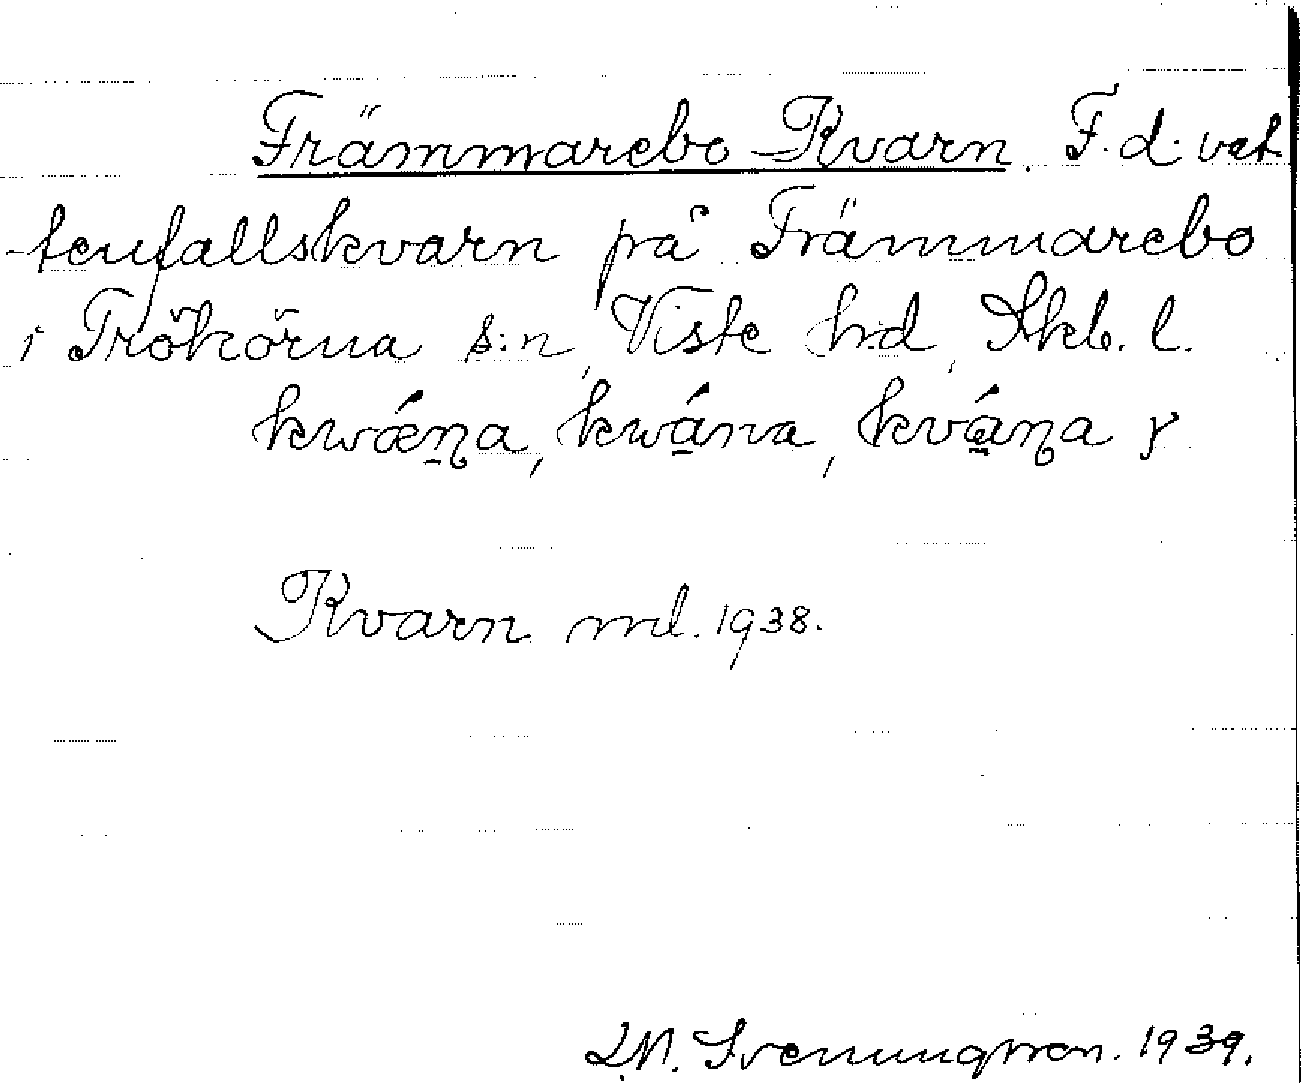 Främmarebo Kvarn. F. d. vat
-tenfallskvarn på Främmarebo
i Trökörna s:n, Viste hd, Skb. l.
kwǽn̠a, kwána, kváṉa γ
Kvarn ml. 1938.
Svenungsson. 1939.